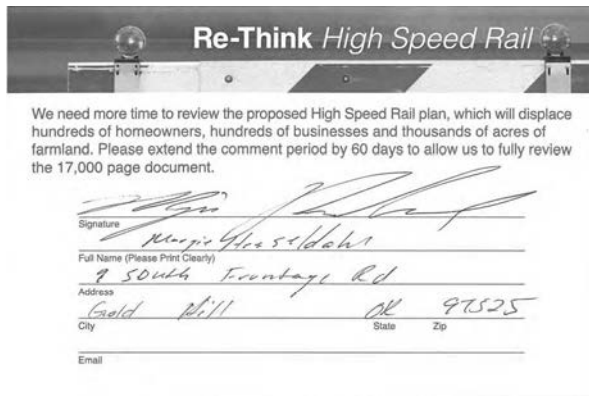 Re-Think High Speed Rail
We need more time to review the proposed High Speed Rail plan, which will displace
hundreds of homeowners, hundreds of businesses and thousands of acres of
farmland. Please extend the comment period by 60 days to allow us to fully review
the 17,000 page document.
Signature
Margie
Full Name (Please Print Clearly)
9 South Frontage Rd
Address
Gold Hill OR 97525
City State Zip
Email